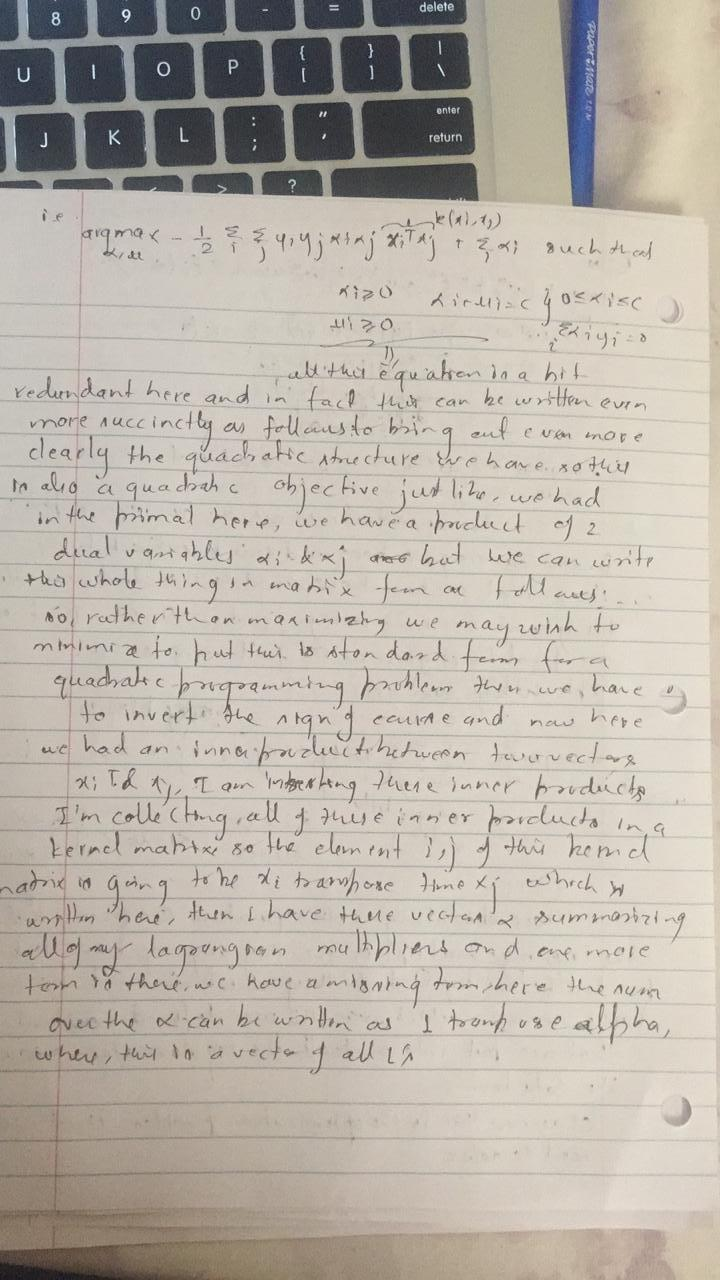 8 9 0 - = delete
U I O P { [ } ] | \
J K L : ; " ' enter return
> ?
PAPER MATE
i.e
argmax - 1/2 Σ Σ yi yj αi αj xiᵀxj + Σ αi such that
α,μ i j k(xi,xj) i
αi≥0 αi+μi=c } 0≤αi≤c
μi≥0 Σ αi yi=0
i
all this equation is a bit
redundant here and in fact this can be written even
more succinctly as follows to bring out even more
clearly the quadratic structure we have. so this
is also a quadratic objective just like, we had
in the primal here, we have a product of 2
dual variables αi & αj but we can write
this whole thing in matrix form as follows:...
so, rather than maximizing we may wish to
minimize to put this is standard form for a
quadratic programming problem then we, have
to invert the sign of course and now here
we had an inner product between two vectors
xi T & xj, I am inserting these inner products
I'm collecting, all of these inner products in a
kernel matrix so the element i,j of this kernel
matrix is going to be xi transpose time xj which is
written here, then I have these vectors α summarizing
all of my lagrangean multipliers and one more
term is there, we have a missing term, here the sum
over the α can be written as 1 transpose alpha,
where, this is a vector of all 1's